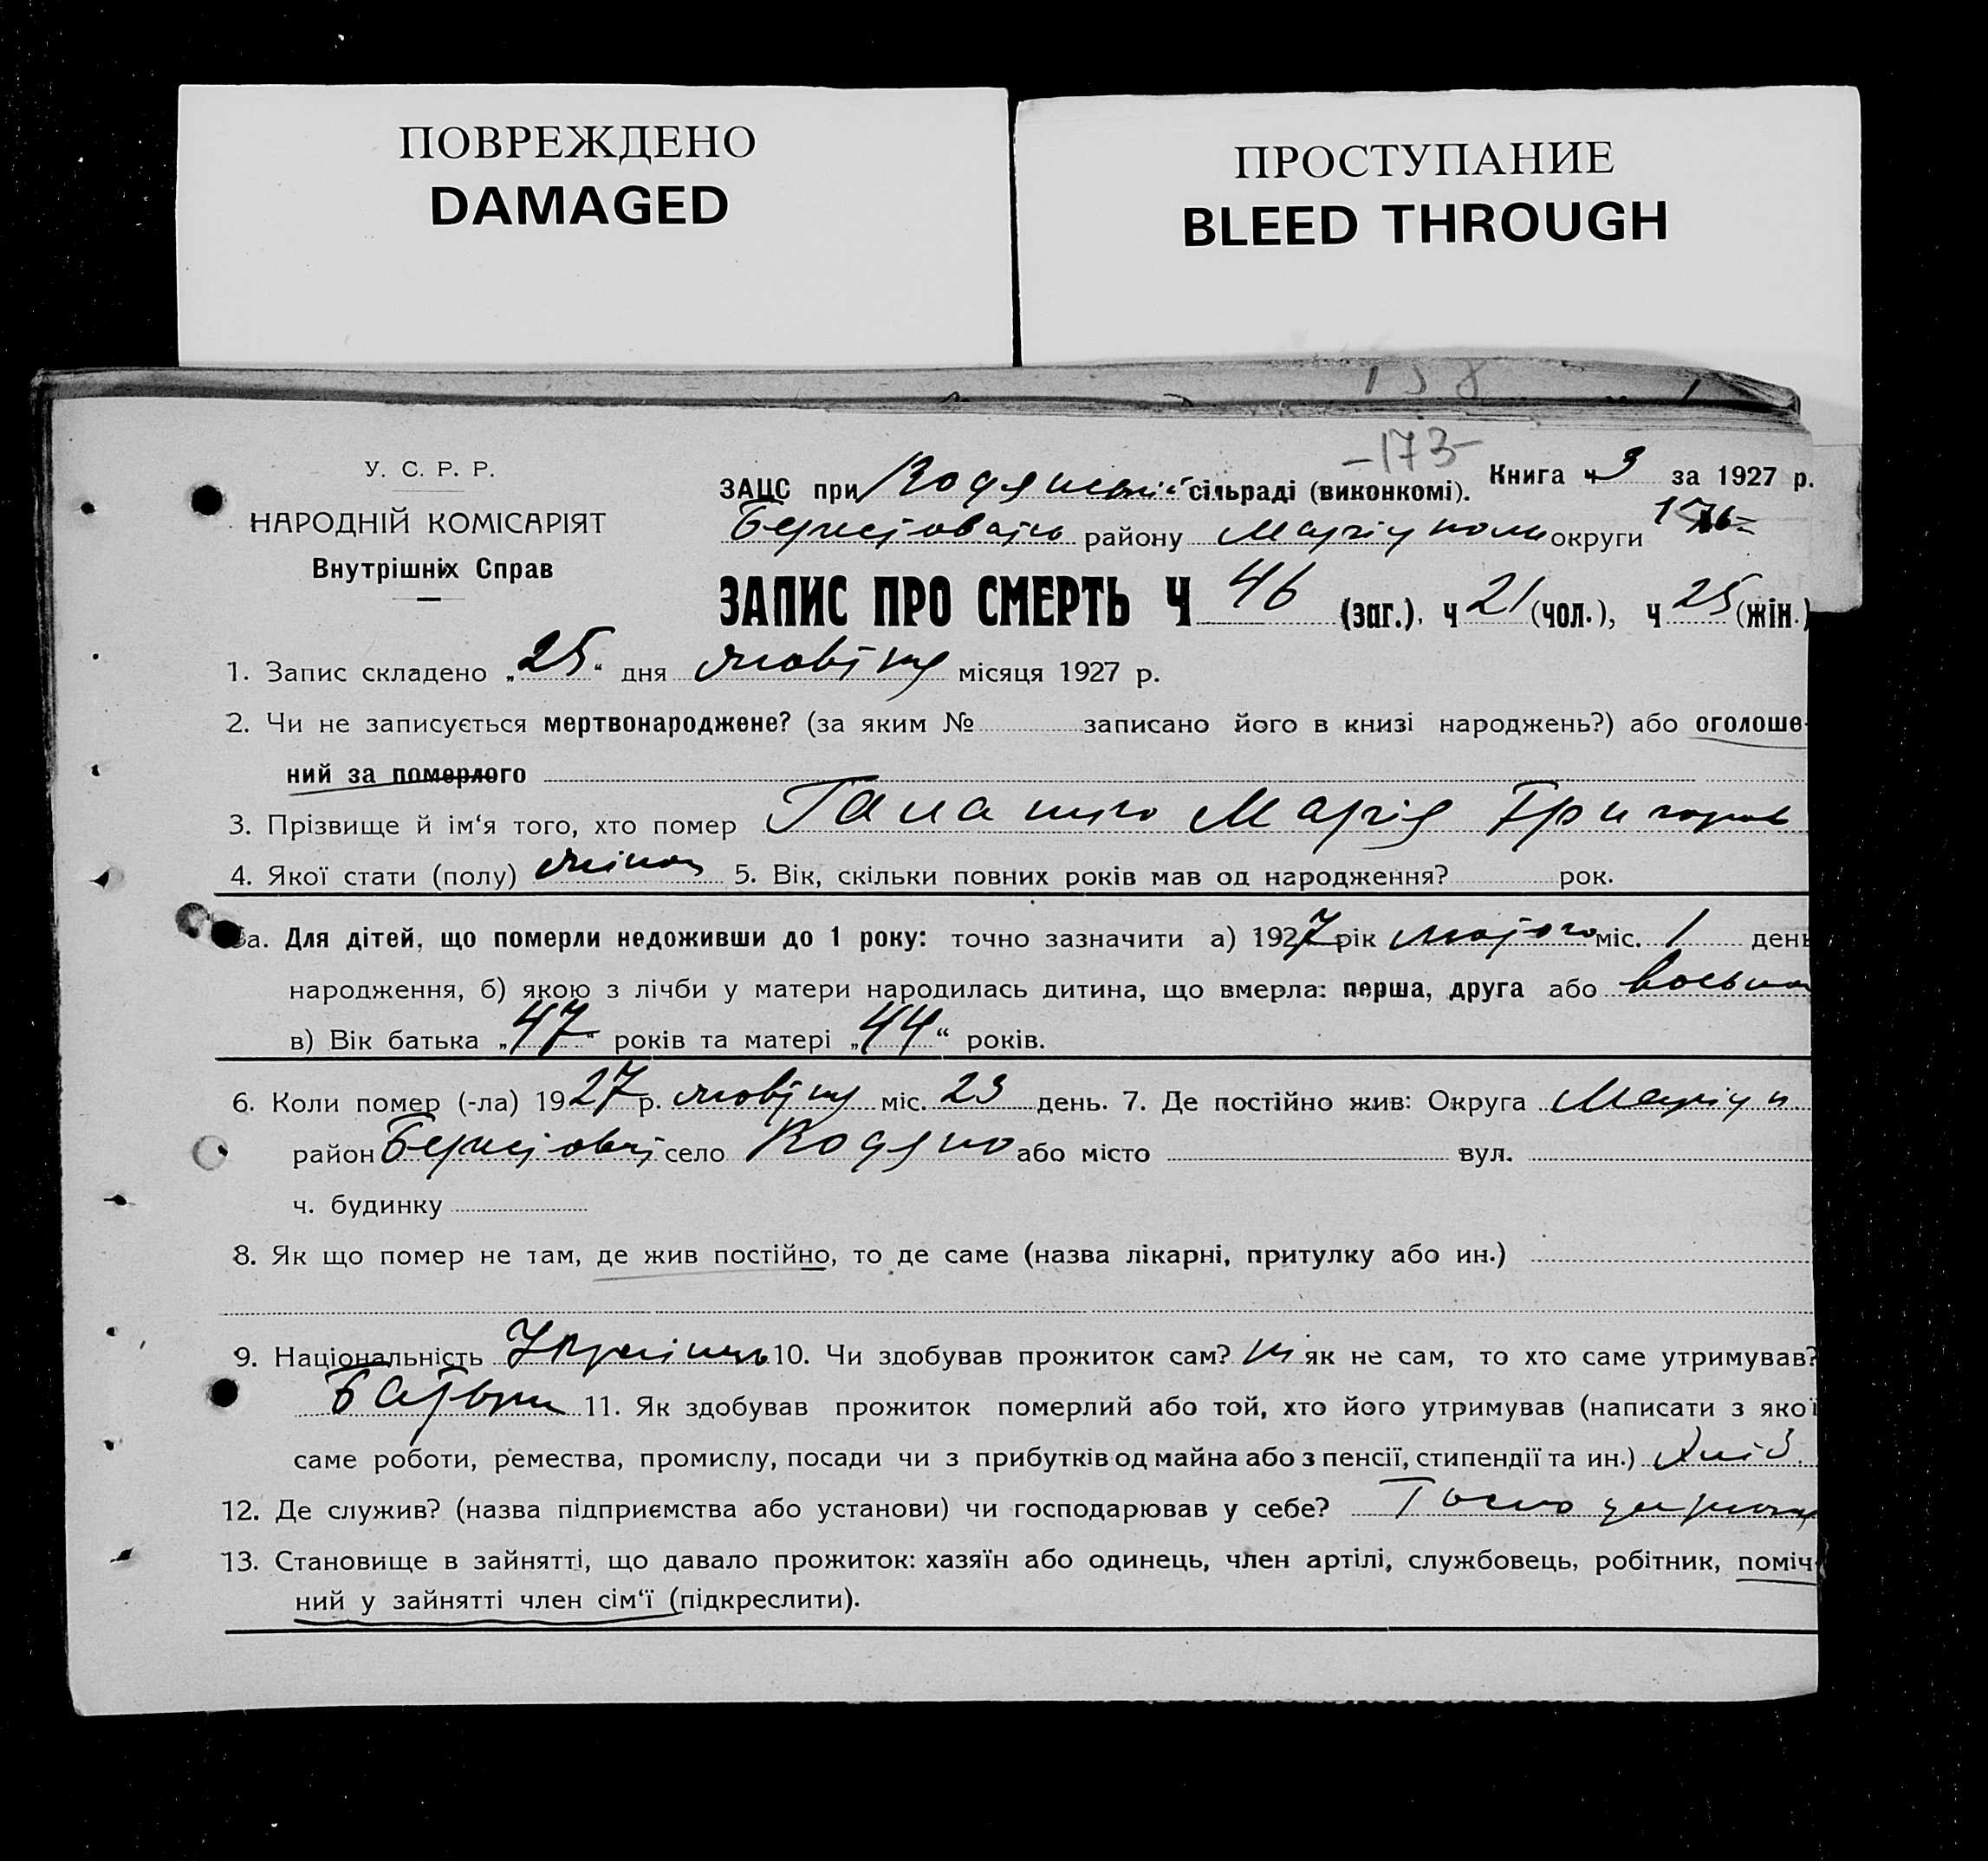 ПОВРЕЖДЕНО
DAMAGED
ПРОСТУПАНИЕ
BLEED THROUGH
158
-173-
У. С. Р. Р.
НАРОДНІЙ КОМІСАРІЯТ
Внутрішніх Справ
ЗАЦС при Водянській сільраді (виконкомі). Книга ч 3 за 1927 р.
району Маріуполь округи
ЗАПИС ПРО СМЕРТЬ Ч 46 (заг.), ч 21 (чол.), ч 25 (жін.)
1. Запис складено „25“ дня жовтня місяця 1927 р.
2. Чи не записується мертвонароджене? (за яким № записано його в книзі народжень?) або оголоше-
ний за померлого
3. Прізвище й ім‘я того, хто помер Марія Григоров
4. Якої стати (полу) жіноч 5. Вік, скільки повних років мав од народження? рок.
5а. Для дітей, що померли недоживши до 1 року: точно зазначити а) 1927 рік лютого міс. 1 день
народження, б) якою з лічби у матери народилась дитина, що вмерла: перша, друга або восьма
в) Вік батька „47“ років та матері „44“ років.
6. Коли помер (-ла) 1927 р. жовтня міс. 23 день. 7. Де постійно жив: Округа Маріуп
район село Водяно або місто вул.
ч. будинку
8. Як що помер не там, де жив постійно, то де саме (назва лікарні, притулку або ин.)
9. Національність 10. Чи здобував прожиток сам? ні як не сам, то хто саме утримував?
Батьки 11. Як здобував прожиток померлий або той, хто його утримував (написати з якої
саме роботи, ремества, промислу, посади чи з прибутків од майна або з пенсії, стипендії та ин.)
12. Де служив? (назва підприємства або установи) чи господарював у себе?
13. Становище в зайнятті, що давало прожиток: хазяїн або одинець, член артілі, службовець, робітник, поміч-
ний у зайнятті член сім‘ї (підкреслити).